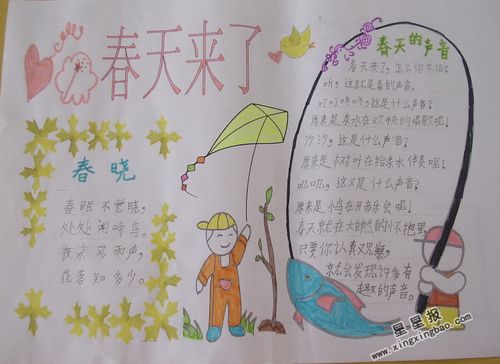 春天来了
春晓
春眠不觉晓,
处处闻啼鸟。
夜来风雨声,
花落知多少。
春天的声音
春天来了,怎么你不信?
听,这就是春的声音。
叮叮咚咚,这是什么声音?
原来是泉水在欢快的唱歌呢!
沙沙,这是什么声音?
原来是树叶在给泉水伴奏呢!
叽叽,这又是什么声音?
原来是小鸟在开音乐会呢!
春天就在大自然的怀抱里,
只要你认真观察,
就会发现许多有
趣的声音。
星星报
www.xingxingbao.com